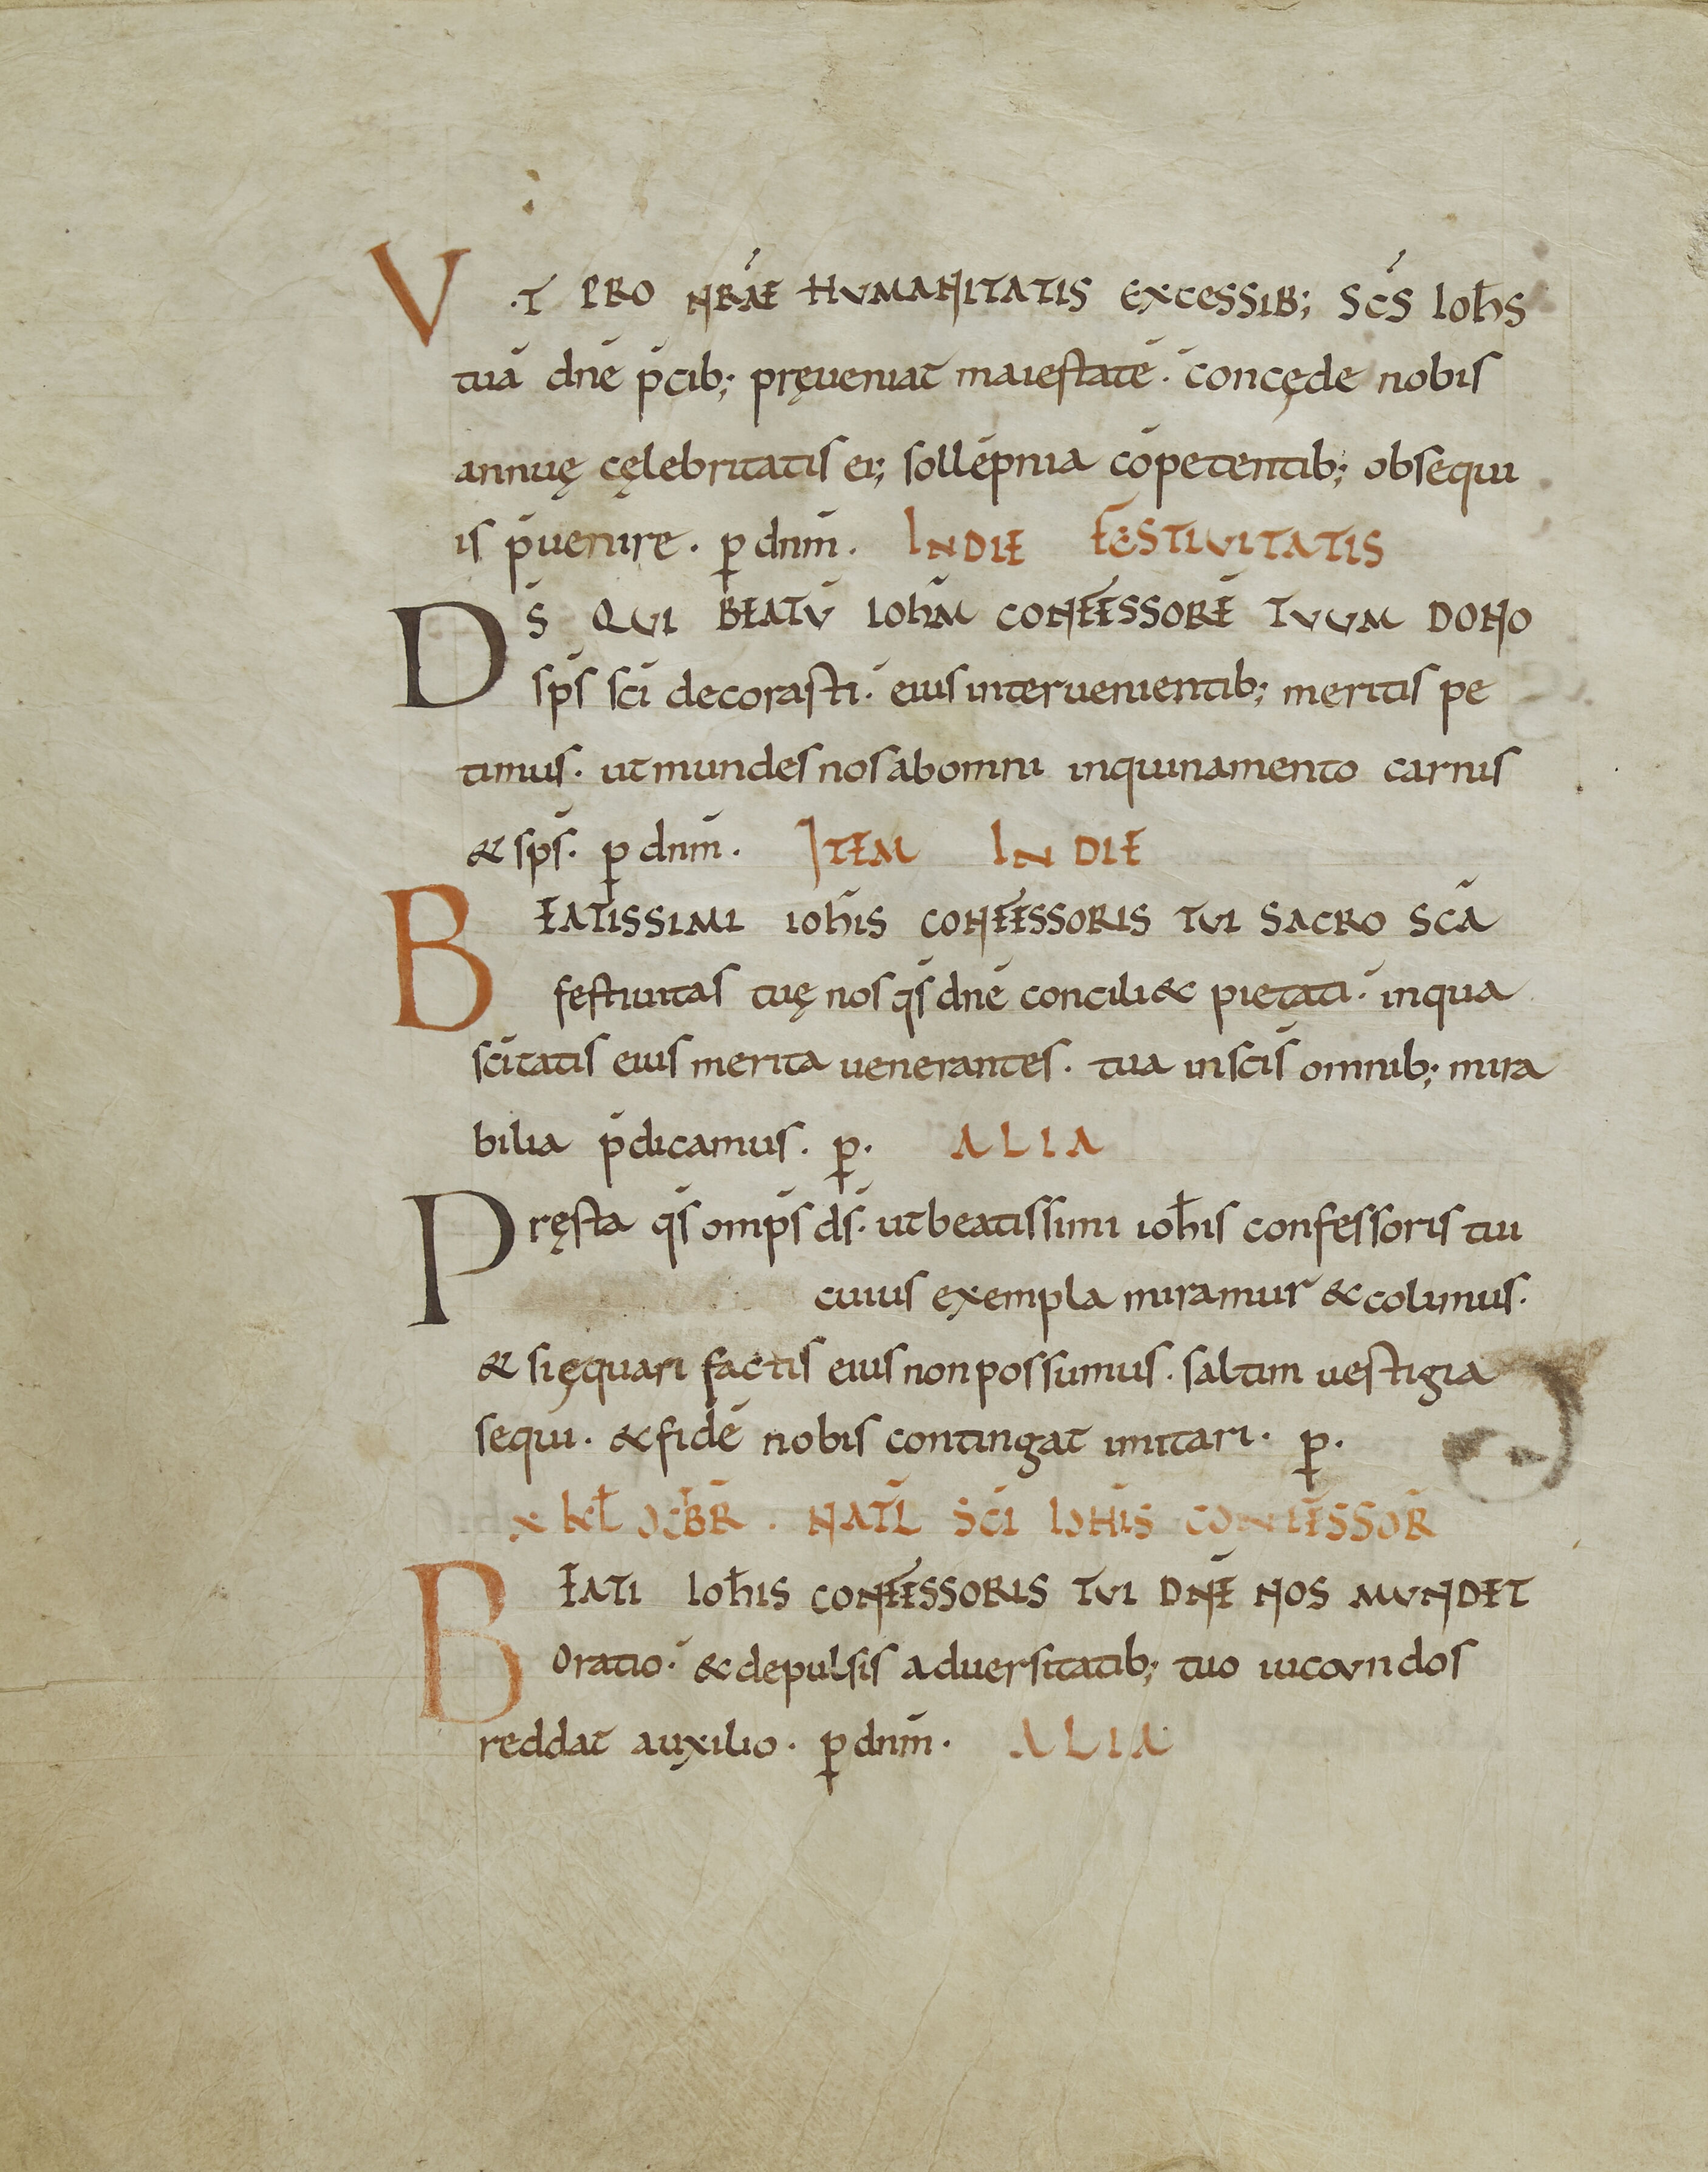 V·T PRO NRĀE HUMANITATIS EXCESSIB; SC̄S IOH̄S
tuā dnē p̄cib; pręueniat maiestatē· concęde nobis
annuę cęlebritatis ei; sollēpnia cōpetentib; obsequi
is p̄uenire· ꝑ dnm̄· IN DIE FESTIVITATIS
DS̄ QUI BEATŪ IOHM̄ CONFESSORĒ TUUM DONO
sps̄ sci̅ decorasti· eius interuenientib; meritis pe
timus· ut mundes nos ab omni inquinamento carnis
& sps̄· ꝑ dnm̄· ITEM IN DIE
BEATISSIMI IOH̄IS CONFESSORIS TUI SACRO SCĀ
festiuitas tuę nos qs̄ dnē concili& pietati· in qua
sci̅tatis eius merita uenerantes· tua in sci̅s omnib; mira
bilia p̄dicamus· ꝑ· ALIA
Pręsta qs̄ omps̄ ds̄· ut beatissimi ioh̄is confessoris tui
cuius exempla miramur & colimus·
& si ęquari factis eius non possumus· saltim uestigia
sequi· & fidē nobis contingat imitari· ꝑ·
X KL̄ OCTBR̄· NATL̄ SCI̅ IOHI̅S CONFESSOR̄
BEATI IOH̄IS CONFESSORIS TUI DNĒ NOS MUNDET
oratio· & depulsis aduersitatib; tuo iucundos
reddat auxilio· ꝑ dnm̄· ALIA